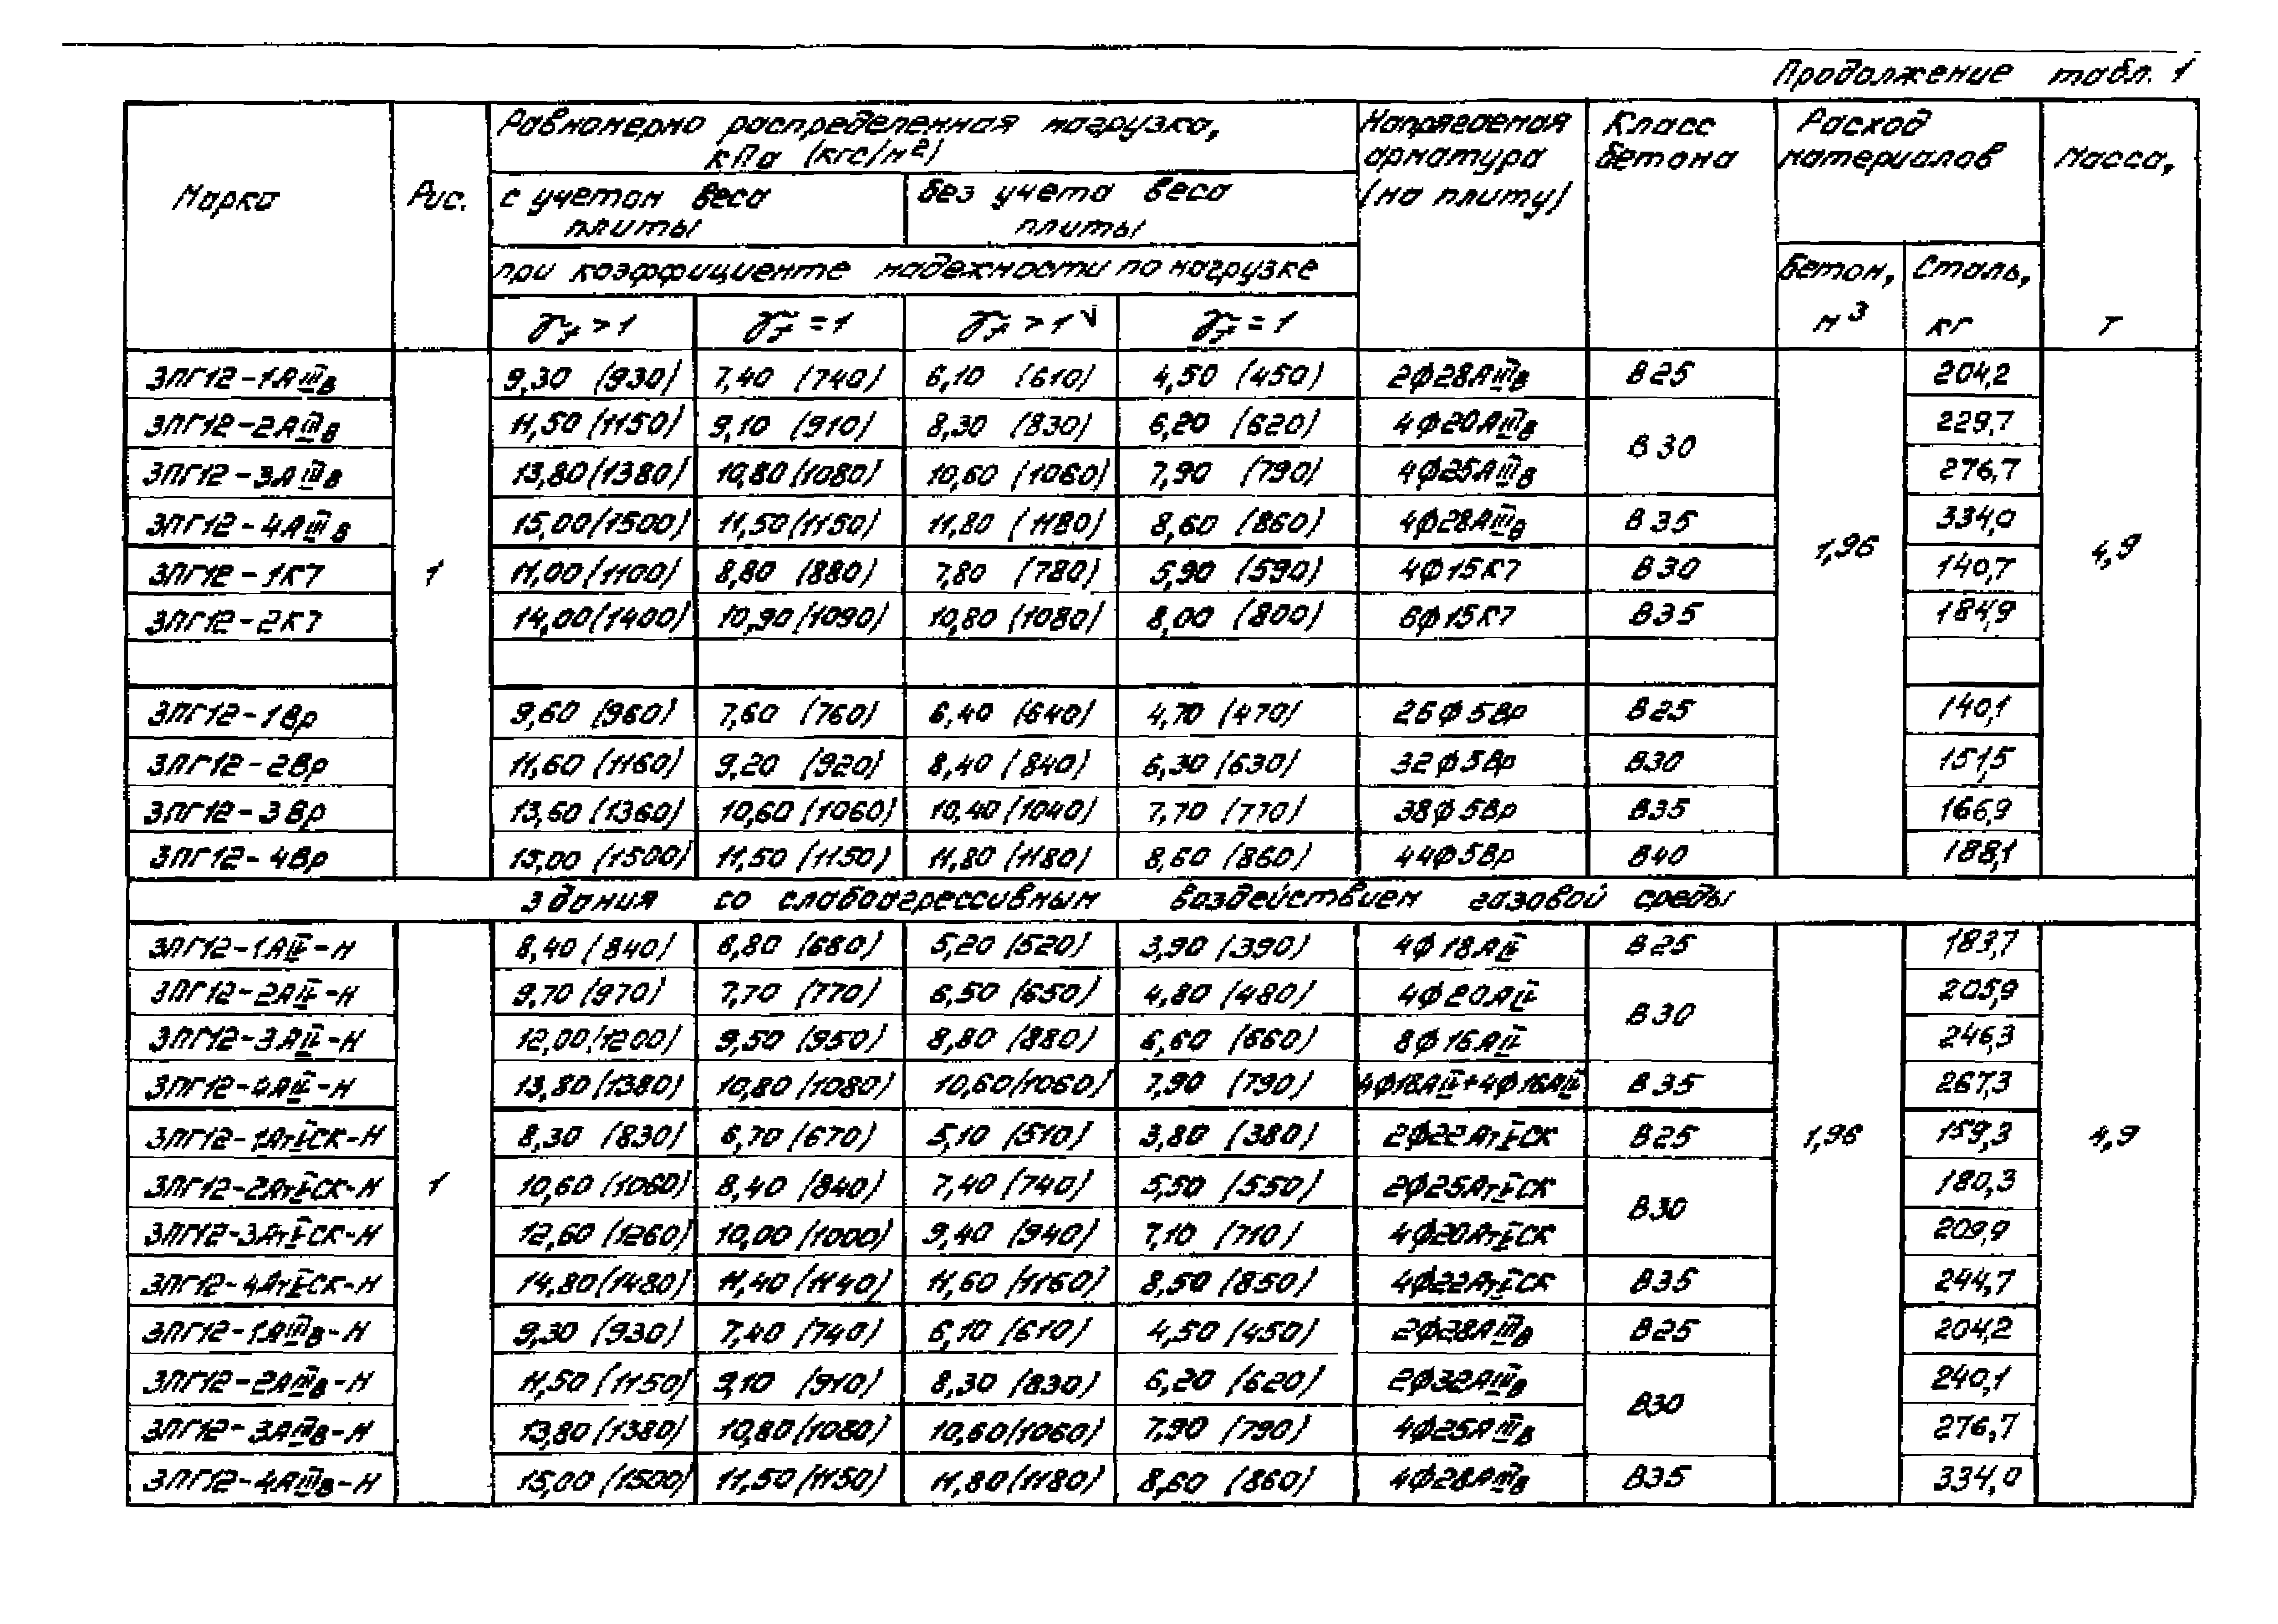 Продолжение табл. 1
Марка Рис. Равномерно распределенная нагрузка, кПа (кгс/м²) Напрягаемая арматура (на плиту) Класс бетона Расход материалов Масса, т
с учетом веса плиты без учета веса плиты
при коэффициенте надежности по нагрузке Бетон, м³ Сталь, кг
γf > 1 γf = 1 γf > 1 γf = 1
3ПГ12-1АШв 9,30 (930) 7,40 (740) 6,10 (610) 4,50 (450) 2φ28АШв В25 204,2
3ПГ12-2АШв 11,50 (1150) 9,10 (910) 8,30 (830) 6,20 (620) 4φ20АШв В30 229,7
3ПГ12-3АШв 13,80 (1380) 10,80 (1080) 10,60 (1060) 7,90 (790) 4φ25АШв 276,7
3ПГ12-4АШв 15,00 (1500) 11,50 (1150) 11,80 (1180) 8,60 (860) 4φ28АШв В35 334,0
3ПГ12-1К7 1 11,00 (1100) 8,80 (880) 7,80 (780) 5,90 (590) 4φ15К7 В30 1,96 140,7 4,9
3ПГ12-2К7 14,00 (1400) 10,90 (1090) 10,80 (1080) 8,00 (800) 6φ15К7 В35 184,9
3ПГ12-1Вр 9,60 (960) 7,60 (760) 6,40 (640) 4,70 (470) 26φ5Вр В25 140,1
3ПГ12-2Вр 11,60 (1160) 9,20 (920) 8,40 (840) 6,30 (630) 32φ5Вр В30 151,5
3ПГ12-3Вр 13,60 (1360) 10,60 (1060) 10,40 (1040) 7,70 (770) 38φ5Вр В35 166,9
3ПГ12-4Вр 15,00 (1500) 11,50 (1150) 11,80 (1180) 8,60 (860) 44φ5Вр В40 188,1
здания со слабоагрессивным воздействием газовой среды
3ПГ12-1АIV-Н 8,40 (840) 6,80 (680) 5,20 (520) 3,90 (390) 4φ18АIV В25 183,7
3ПГ12-2АIV-Н 9,70 (970) 7,70 (770) 6,50 (650) 4,80 (480) 4φ20АIV В30 205,9
3ПГ12-3АIV-Н 12,00 (1200) 9,50 (950) 8,80 (880) 6,60 (660) 8φ16АIV 246,3
3ПГ12-4АIV-Н 13,80 (1380) 10,80 (1080) 10,60 (1060) 7,90 (790) 4φ18АIV+4φ16АIV В35 267,3
3ПГ12-1АтVСК-Н 8,30 (830) 6,70 (670) 5,10 (510) 3,80 (380) 2φ22АтVСК В25 1,96 159,3 4,9
3ПГ12-2АтVСК-Н 1 10,60 (1060) 8,40 (840) 7,40 (740) 5,50 (550) 2φ25АтVСК В30 180,3
3ПГ12-3АтVСК-Н 12,60 (1260) 10,00 (1000) 9,40 (940) 7,10 (710) 4φ20АтVСК 209,9
3ПГ12-4АтVСК-Н 14,80 (1480) 11,40 (1140) 11,60 (1160) 8,50 (850) 4φ22АтVСК В35 244,7
3ПГ12-1АШв-Н 9,30 (930) 7,40 (740) 6,10 (610) 4,50 (450) 2φ28АШв В25 204,2
3ПГ12-2АШв-Н 11,50 (1150) 9,10 (910) 8,30 (830) 6,20 (620) 2φ32АШв В30 240,1
3ПГ12-3АШв-Н 13,80 (1380) 10,80 (1080) 10,60 (1060) 7,90 (790) 4φ25АШв 276,7
3ПГ12-4АШв-Н 15,00 (1500) 11,50 (1150) 11,80 (1180) 8,60 (860) 4φ28АШв В35 334,0